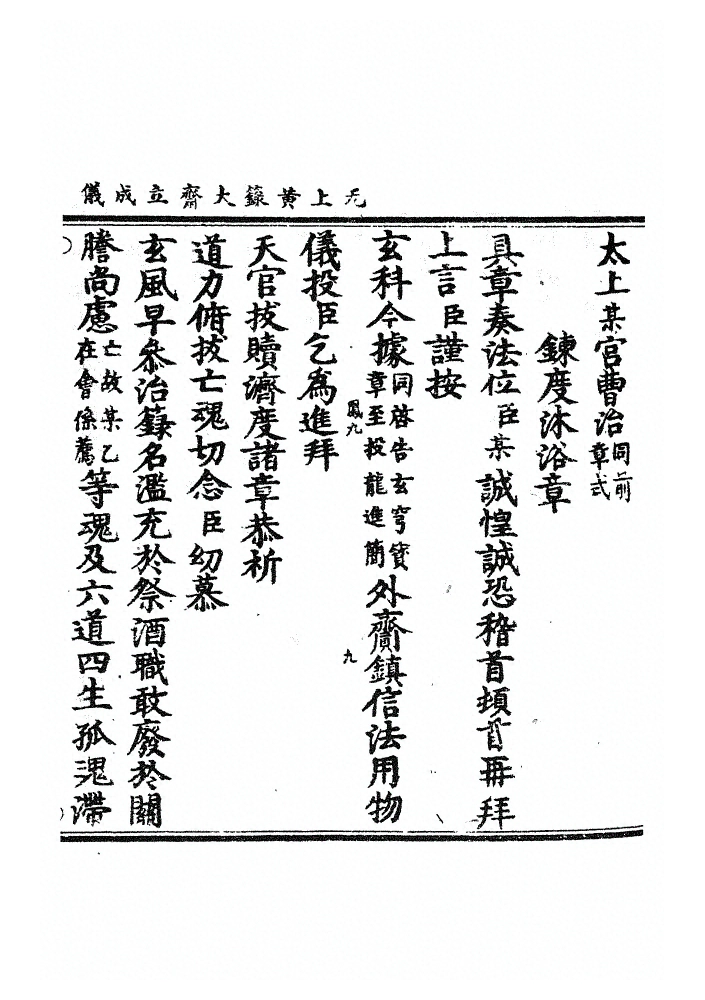 无上黄籙大齋立成儀
太上某宮曹治同前章式
鍊度沐浴章
具章奏法位臣某誠惶誠恐稽首頓首再拜
上言臣謹按
玄科今據同啓告玄穹寳章至投龍進簡外齎鎮信法用物
鳳九
九
儀投臣乞為進拜
天官拔贖濟度諸章恭祈
道力俯拔亡魂切念臣幻慕
玄風早叅治籙名濫充於祭酒職敢廢於關
謄尚慮亡故某乙在會係薦等魂及六道四生孤魂滯